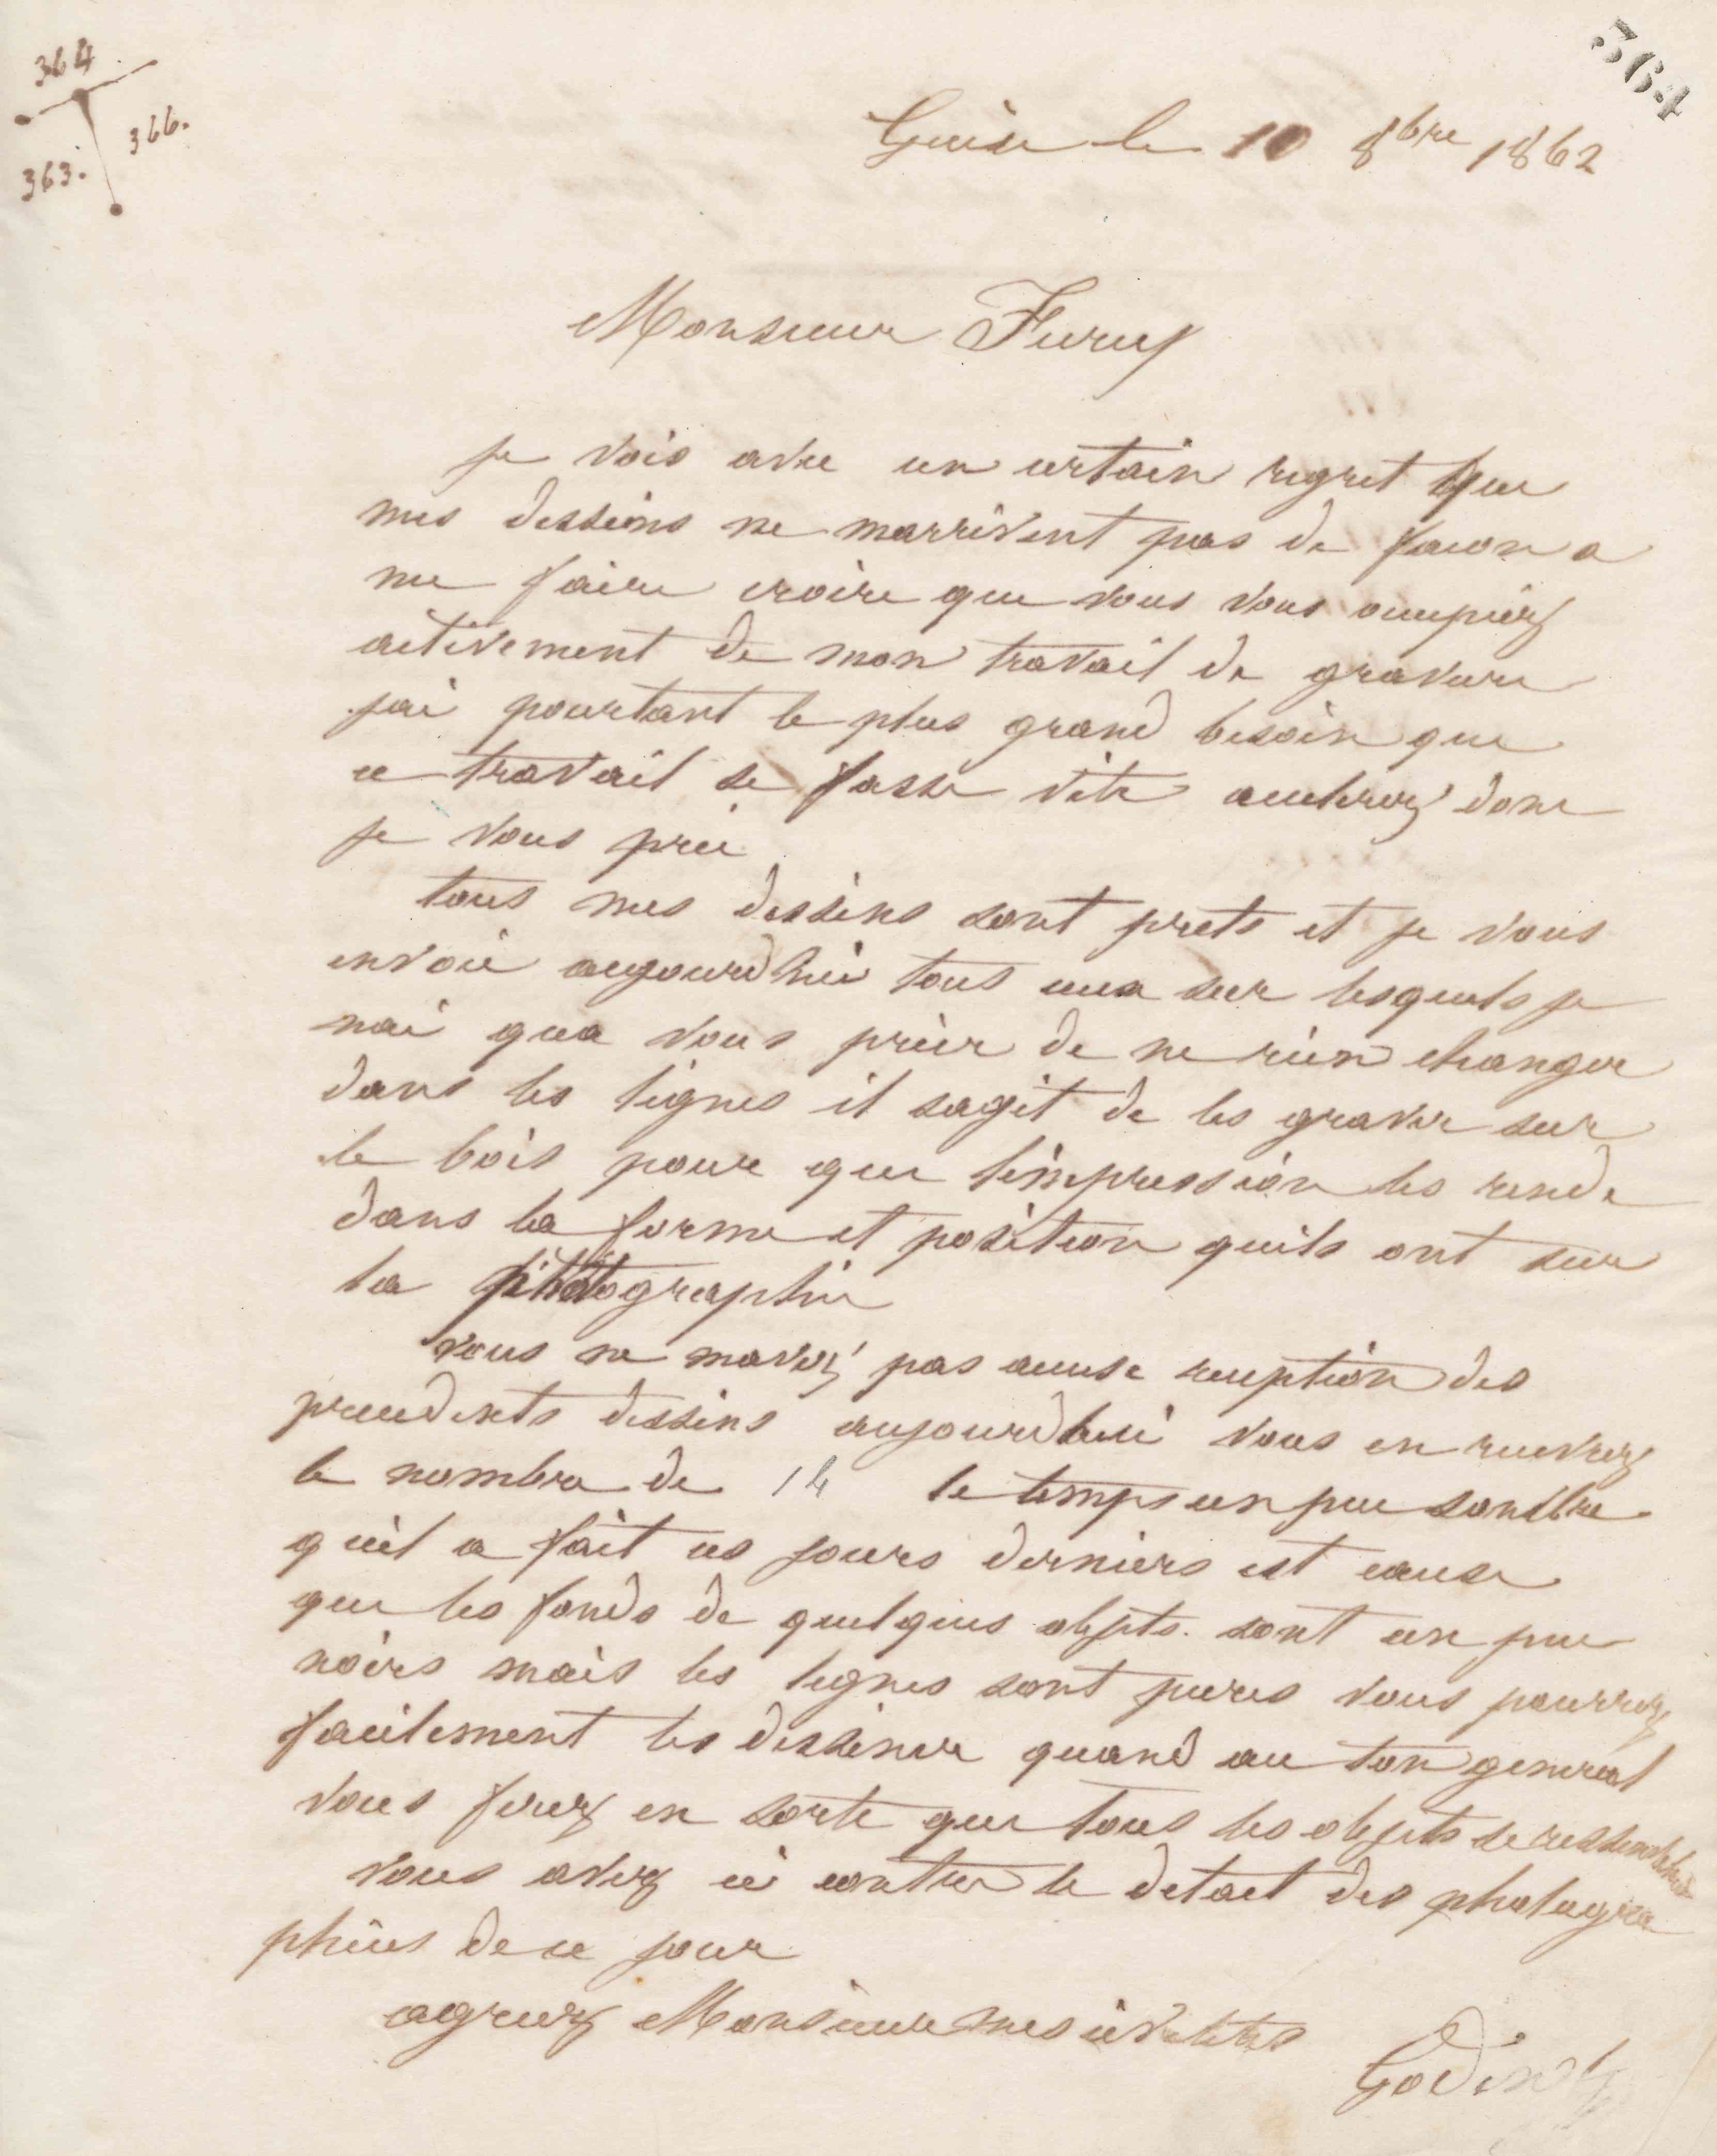 364
366.
363.
364
Guise le 10 8bre 1862
Monsieur
je vois avec un certain regret que
mes dessins ne marrivent pas de facon a
me faire croire que vous vous occupiez
activement de mon travail de gravure
jai pourtant le plus grand besoin que
ce travail se fasse vite accelerez donc
je vous prie
tous mes dessins sont prets et je vous
envoie aujourdhui tous ceux sur lesquels je
nai qua vous prier de ne rien changer
dans les lignes il sagit de les graver sur
le bois pour que limpression les rende
dans la forme et position quils ont sur
la photographie
vous ne mavez pas accuse reception des
precedents dessins aujourdhui vous en recevrez
le nombre de 14 le temps un peu sombre
quil a fait ces jours derniers est cause
que les fonds de quelques objets sont un peu
noirs mais les lignes sont pures vous pourrez
facilement les dessiner quand au ton general
vous ferez en sorte que tous les objets se ressemblent
vous avez ci contre le detail des photogra
phies de ce jour
agreez Monsieur mes civilites
Godin